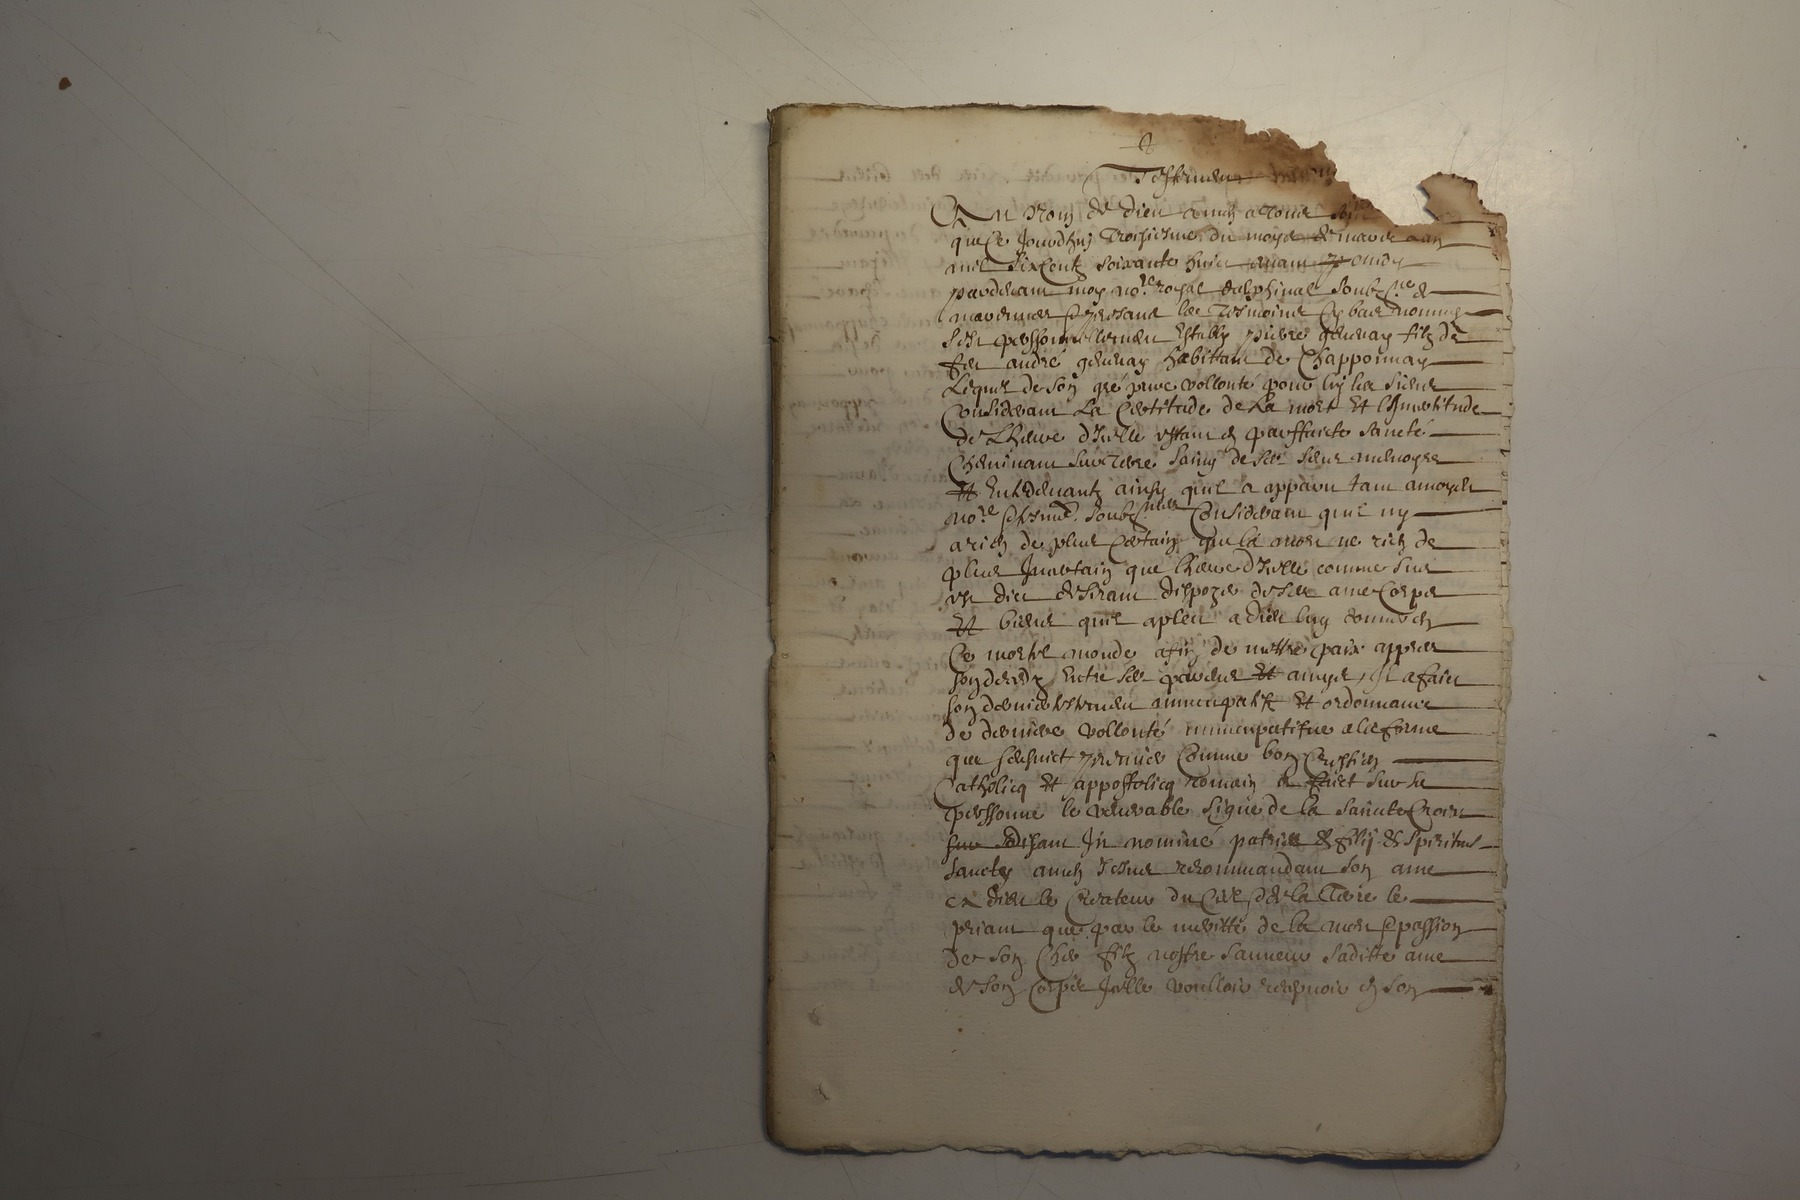 Testament
Au Nom de dieu amen a tous soit
que Ce Jourdhuy troisiesme du moys de mars
mil Sixcentz soixante huict avant
pardevant moy no.re royal dalphinal soubz.né &
presant les tesmoins Cy bas nommes
Sest personnellement Estably pierre filz de
feu andré habittant de Chapponnay
Lequel de son gré pure vollonté pour luy les siens
Considerant La Certitude de La mort Et l'Incertitude
de L'heure d'Icelle estant en parffaicte santé
Cheminant sur terre saing de ses sens memoyre
Et Entedemantz ainsy quil a apparu tant amoydit
no.re & tesmo. soubz.nes Considerant quil ny
a rien de plus Certain que la mort ne rien de
plus Incertain que lheure d'Icelle comme sur
dict desirant dispozer de ses ame Corps
Et biens quil apleu a dieu luy donner en
Ce mortel monde afin de mettre paix appres
son deces Entre ses parens Et amys, Il a faict
son dernier testement nuncupatif Et ordonnance
de derniere vollonté nuncupatifve a la forme
que sensuict premier Comme bon Crestien
Catholicq Et appostolicq romain a faict sur sa
personne le venerable signe de la saincte Croix
disant In nominé patris & filij & spiritus
sancty amen recommandant son ame
a dieu le Createur du Ciel & de la Terre le
priant que par le meritte de la mort & passion
de son Cher filz nostre sauveur saditte ame
de son Corps Icelle voulloir recepvoir en son